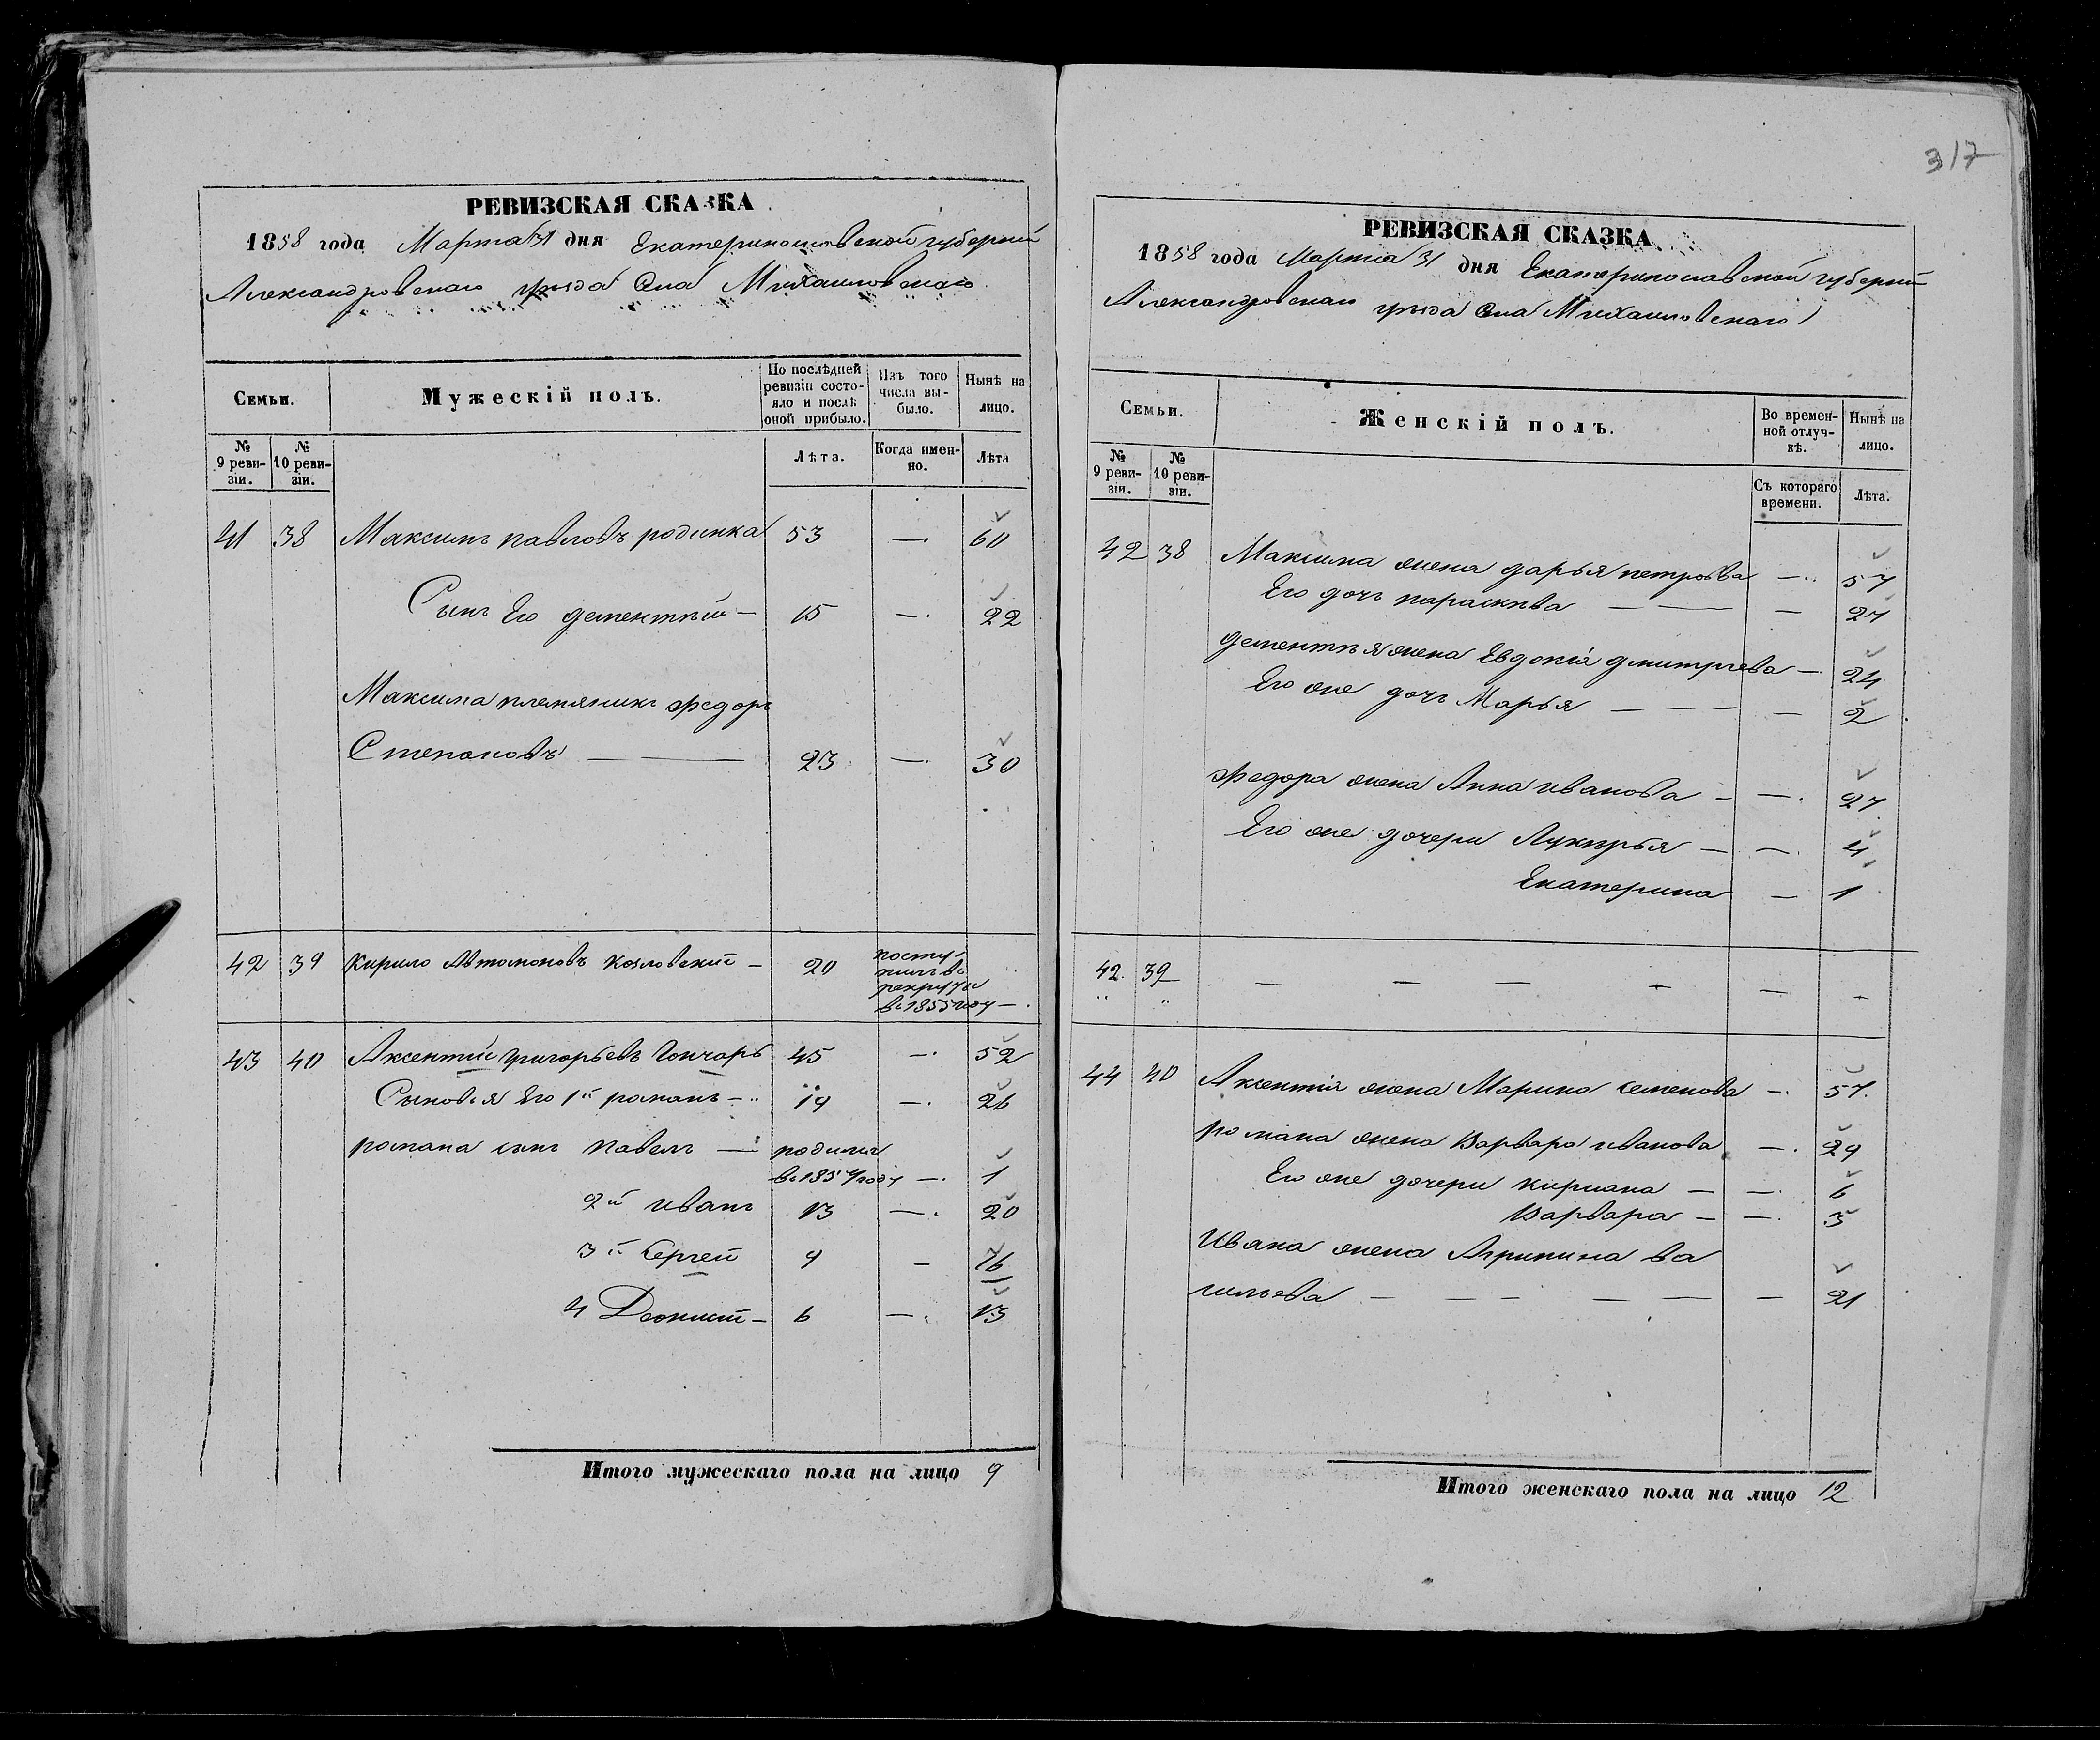 317
РЕВИЗСКАЯ СКАЗКА
1858 года Марта 31 дня Екатеринославской губерніи
Александровскаго уѣзда Села Михайловскаго
Семьи.
Мужескій полъ.
По послѣдней ревизіи состояло и послѣ оной прибыло.
Изъ того числа выбыло.
Нынѣ на лицо.
№ 9 ревизіи.
№ 10 ревизіи.
Лѣта.
Когда именно.
Лѣта
41 38 Максимъ павловъ родинка 53 — 60
Сынъ Его дементѣй — 15 — 22
Максима племяникъ Федоръ
Степановъ — 23 — 30
42 39 Кирило Автомоновъ Козловский — 20 поступилъ въ рекруты въ 1855 году —
43 40 Аксентий григорьевъ Гончаръ 45 — 52
Сыновья Его 1й романъ — 19 — 26
романа сынъ Павелъ — родился
въ 1857 году — 1
2й иванъ 13 — 20
3й Сергей 9 — 16
4 Дионисий — 6 — 13
Итого мужескаго пола на лицо 9
РЕВИЗСКАЯ СКАЗКА
1858 года Марта 31 дня Екатеринославской губерніи
Александровскаго уѣзда Села Михайловскаго
Семьи.
Женскій полъ.
Во временной отлучкѣ.
Нынѣ на лицо.
№ 9 ревизіи.
№ 10 ревизіи.
Съ котораго времени.
Лѣта.
42 38 Максима жена дарья петрова — 57
Его дочь параскѣва — — — 27
дементѣя жена Евдокія дмитріева — 24
Его же дочь Марья — — — — 2
Федора жена Анна иванова — — 27
Его же дочери Лукѣрья — — 4
Екатерина — 1
42. 39 — — — — — —
" "
44 40 Аксентія жена Марина семенова — 57.
романа жена Варвара иванова — 29
Его же дочери кириана — — 6
Варвара — — 3
Ивана жена Агрипина ва
сильева — — — — — — 21
Итого женскаго пола на лицо 12